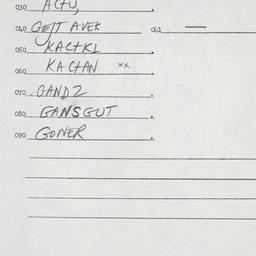 030 ACTU,
040 GETT AVEK 041 —
050 KACTKL
060 KACTAN xx
070 GANDZ
080 GANSGUT
090 GONER